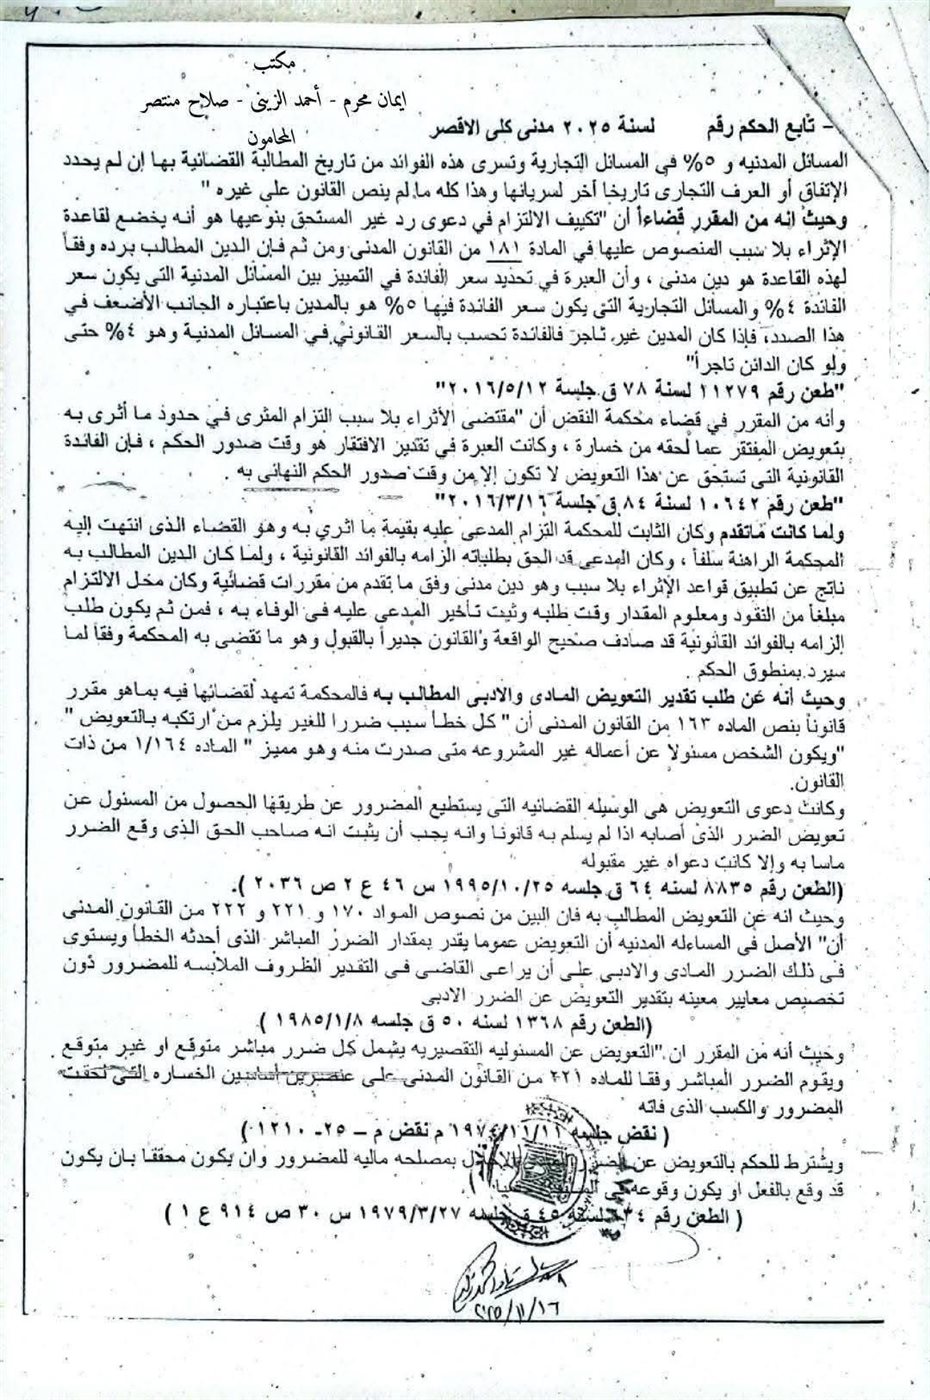 مكتب
ايمان محرم - أحمد الزينى - صلاح منتصر
المحامون
- تابع الحكم رقم لسنة ٢٠٢٥ مدنى كلى الاقصر
المسائل المدنيه و ٥% فى المسائل التجارية وتسرى هذه الفوائد من تاريخ المطالبة القضائية بها إن لم يحدد
الإتفاق أو العرف التجارى تاريخا أخر لسريانها وهذا كله مالم ينص القانون على غيره "
وحيث انه من المقرر قضاءاً أن "تكييف الالتزام في دعوى رد غير المستحق بنوعيها هو أنه يخضع لقاعدة
الإثراء بلا سبب المنصوص عليها في المادة ١٨١ من القانون المدنى ومن ثم فإن الدين المطالب برده وفقاً
لهذه القاعدة هو دين مدنى ، وأن العبرة في تحديد سعر الفائدة في التمييز بين المسائل المدنية التى يكون سعر
الفائدة ٤% والمسائل التجارية التى يكون سعر الفائدة فيها ٥% هو بالمدين باعتباره الجانب الأضعف في
هذا الصدد، فإذا كان المدين غير تاجر فالفائدة تحسب بالسعر القانوني في المسائل المدنية وهو ٤% حتى
ولو كان الدائن تاجراً"
"طعن رقم ١١٢٧٩ لسنة ٧٨ ق جلسة ٢٠١٦/٥/١٢"
وأنه من المقرر في قضاء محكمة النقض أن "مقتضى الأثراء بلا سبب التزام المثرى في حدود ما أثرى به
بتعويض المفتقر عما لحقه من خسارة ، وكانت العبرة في تقدير الافتقار هو وقت صدور الحكم ، فإن الفائدة
القانونية التى تستحق عن هذا التعويض لا تكون إلا من وقت صدور الحكم النهائى به .
"طعن رقم ١٠٦٤٢ لسنة ٨٤ ق جلسة ٢٠١٦/٣/١٦"
ولما كانت ماتقدم وكان الثابت للمحكمة التزام المدعى عليه بقيمة ما اثري به وهو القضاء الذى انتهت إليه
المحكمة الراهنة سلفاً ، وكان المدعى قد الحق بطلباته الزامه بالفوائد القانونية ، ولما كان الدين المطالب به
ناتج عن تطبيق قواعد الإثراء بلا سبب وهو دين مدنى وفق ما تقدم من مقررات قضائية وكان محل الالتزام
مبلغاً من النقود ومعلوم المقدار وقت طلبه وثبت تأخير المدعى عليه فى الوفاء به ، فمن ثم يكون طلب
إلزامه بالفوائد القانونية قد صادف صحيح الواقعة والقانون جديراً بالقبول وهو ما تقضى به المحكمة وفقا لما
سيرد بمنطوق الحكم .
وحيث أنه عن طلب تقدير التعويض المادى والادبى المطالب به فالمحكمة تمهد لقضائها فيه بماهو مقرر
قانوناً بنص الماده ١٦٣ من القانون المدنى أن " كل خطأ سبب ضررا للغير يلزم من ارتكبه بالتعويض "
"ويكون الشخص مسئولا عن أعماله غير المشروعه متى صدرت منه وهو مميز " الماده ١/١٦٤ من ذات
القانون.
وكانت دعوى التعويض هى الوسيله القضائيه التى يستطيع المضرور عن طريقها الحصول من المسئول عن
تعويض الضرر الذى أصابه اذا لم يسلم به قانونا وانه يجب أن يثبت انه صاحب الحق الذى وقع الضرر
ماسا به وإلا كانت دعواه غير مقبوله
(الطعن رقم ٨٨٣٥ لسنه ٦٤ ق جلسه ١٩٩٥/١٠/٢٥ س ٤٦ ع ٢ ص ٢٠٣٦ ).
وحيث انه عن التعويض المطالب به فان البين من نصوص المواد ١٧٠ و ٢٢١ و ٢٢٢ من القانون المدنى
أن" الأصل فى المساءله المدنيه أن التعويض عموما يقدر بمقدار الضرر المباشر الذى أحدثه الخطأ ويستوى
فى ذلك الضرر المادى والادبى على أن يراعى القاضى فى التقدير الظروف الملابسه للمضرور دون
تخصيص معايير معينه بتقدير التعويض عن الضرر الادبى
(الطعن رقم ١٣٦٨ لسنه ٥٠ ق جلسه ١٩٨٥/١/٨ )
وحيث أنه من المقرر ان "التعويض عن المسئوليه التقصيريه يشمل كل ضرر مباشر متوقع او غير متوقع
ويقوم الضرر المباشر وفقا للماده ٢٢١ من القانون المدنى على عنصرين أساسين الخساره التى لحقت
المضرور والكسب الذى فاته
( نقض جلسه ١٩٧٤/١١/١١ م نقض م – ٢٥ـ ١٢١٠ )
ويشترط للحكم بالتعويض عن الضرر بمصلحه ماليه للمضرور وان يكون محققا بان يكون
قد وقع بالفعل او يكون وقوعه
( الطعن رقم لسنه ٤٥ ق جلسه ١٩٧٩/٣/٢٧ س ٣٠ ص ٩١٤ ع ١ )
٢٠٢٥/١١/١٦